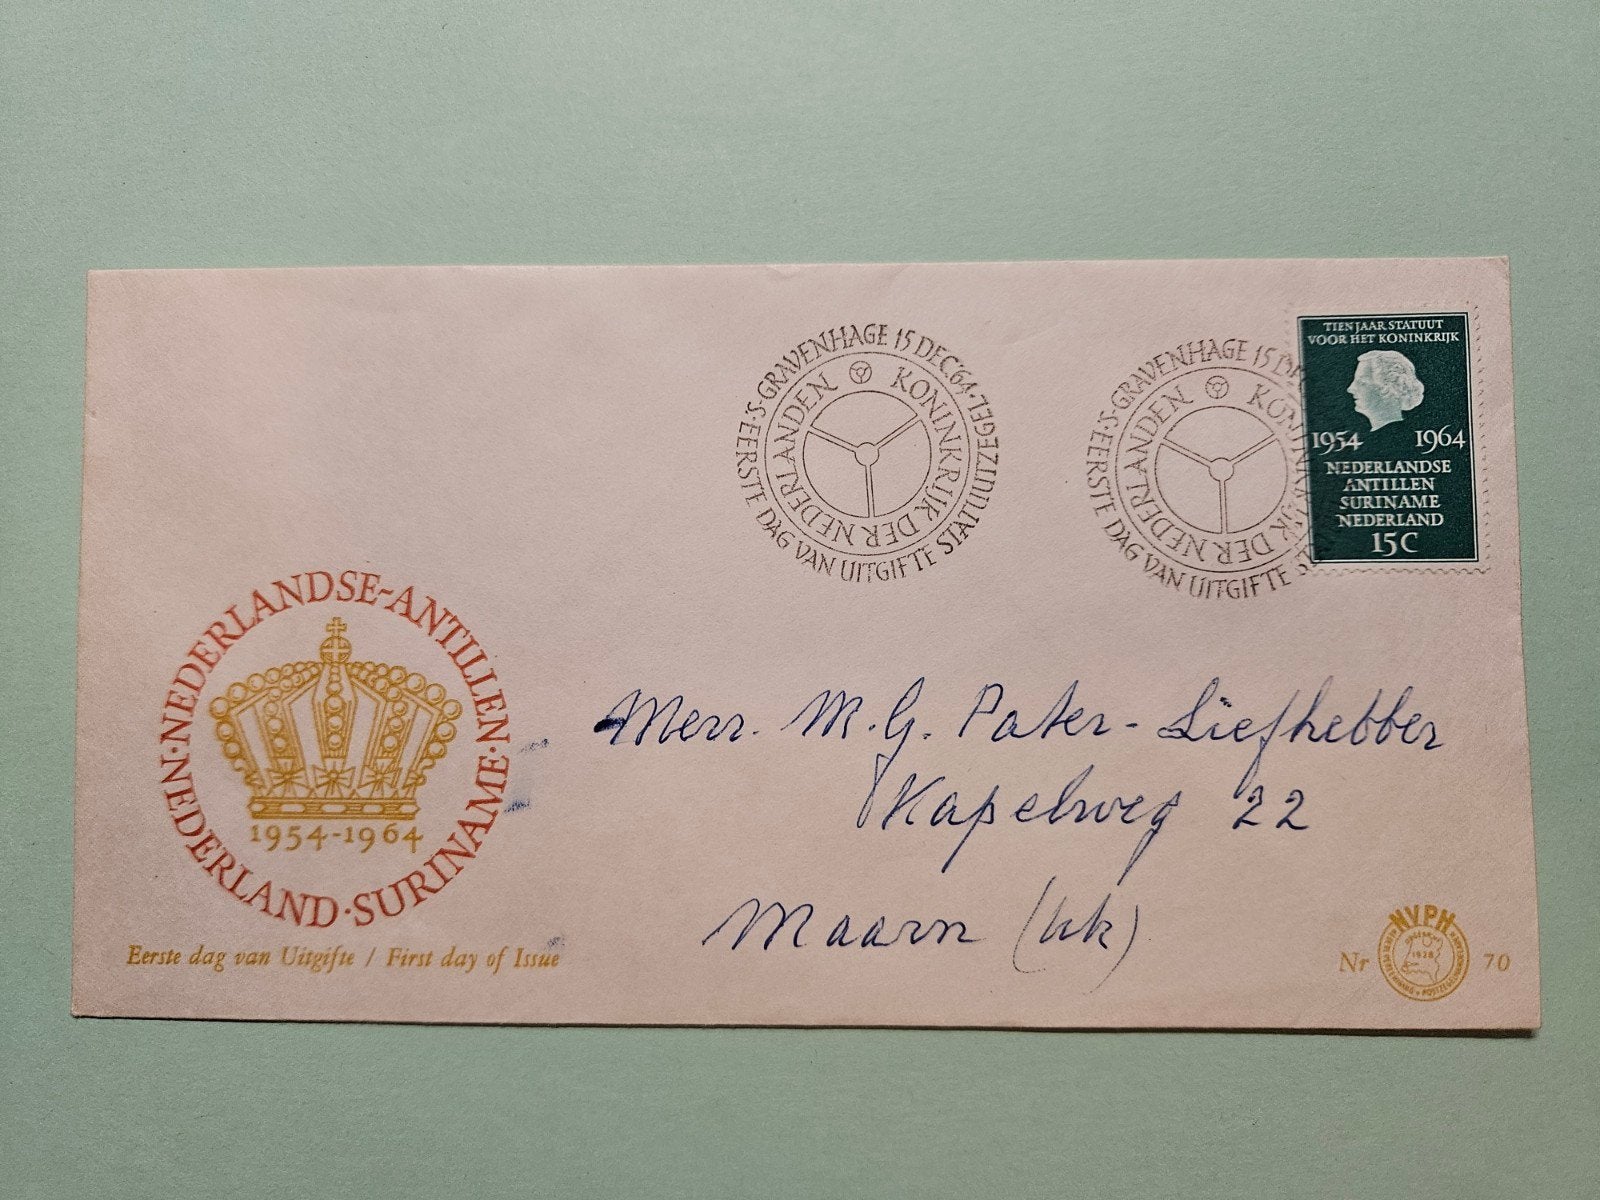 'S-GRAVENHAGE 15 DEC 64 · EERSTE DAG VAN UITGIFTE STATUUTZEGEL ·
KONINKRIJK DER NEDERLANDEN
'S-GRAVENHAGE 15 DE
EERSTE DAG VAN UITGIFTE S
KONINKRIJK DER NEDERLANDEN
TIEN JAAR STATUUT
VOOR HET KONINKRIJK
1954 1964
NEDERLANDSE
ANTILLEN
SURINAME
NEDERLAND
15C
NEDERLANDSE-ANTILLEN · SURINAME · NEDERLAND ·
1954-1964
Eerste dag van Uitgifte / First day of Issue
Merr. M.G. Pater-Liefhebber
Kapelweg 22
Maarn (Utr)
Nr 70
NVPH
1928